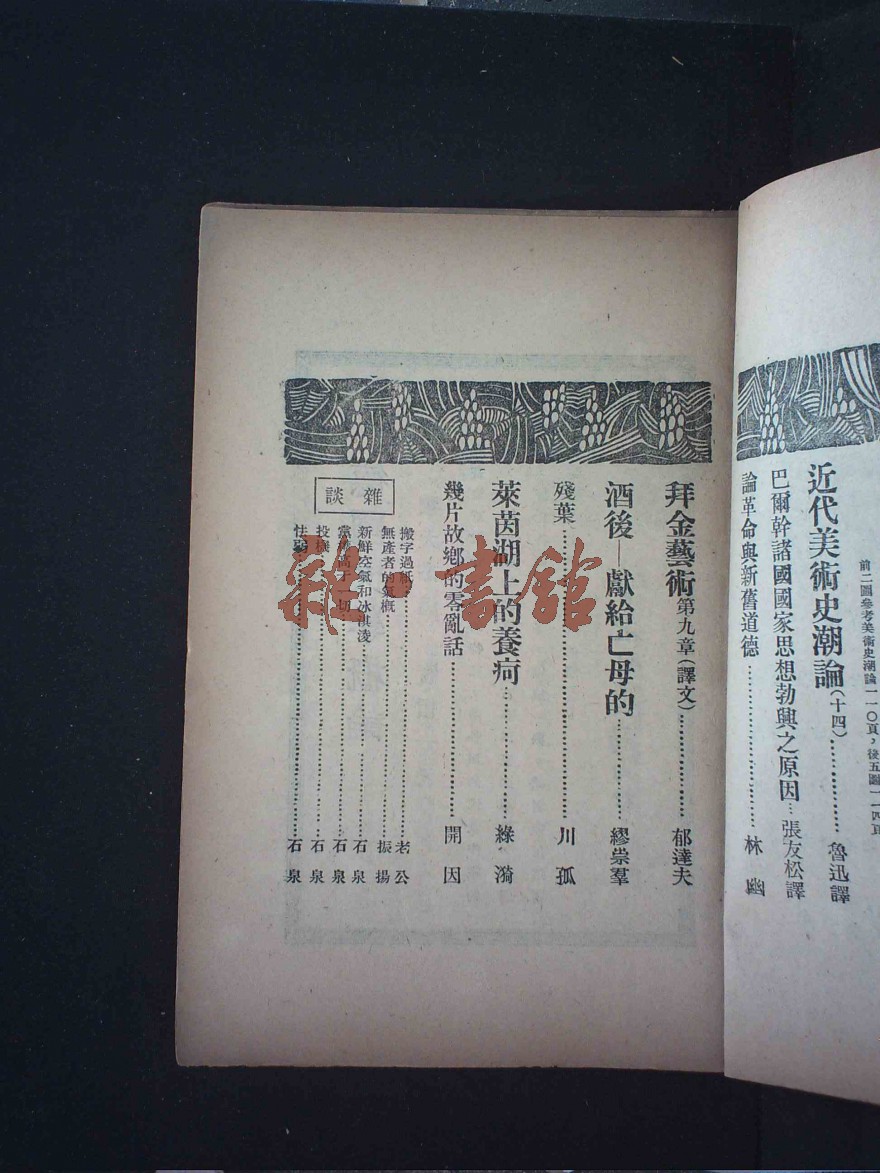 前二圖參考美術史潮論一一〇頁，後五圖一一四頁
近代美術史潮論(十四)…………魯迅譯
巴爾幹諸國國家思想勃興之原因…張友松譯
論革命與新舊道德…………林幽
拜金藝術第九章(譯文)…………郁達夫
酒後—獻給亡母的…………繆崇羣
殘葉…………川孤
萊茵湖上的養疴…………綠漪
幾片故鄉的零亂話…………開因
雜談
搬字過紙…………老公
無產者的氣概…………振揚
新鮮空氣和冰淇淩…………石泉
黨高于一切…………石泉
投機…………石泉
怯…………石泉
雜書館